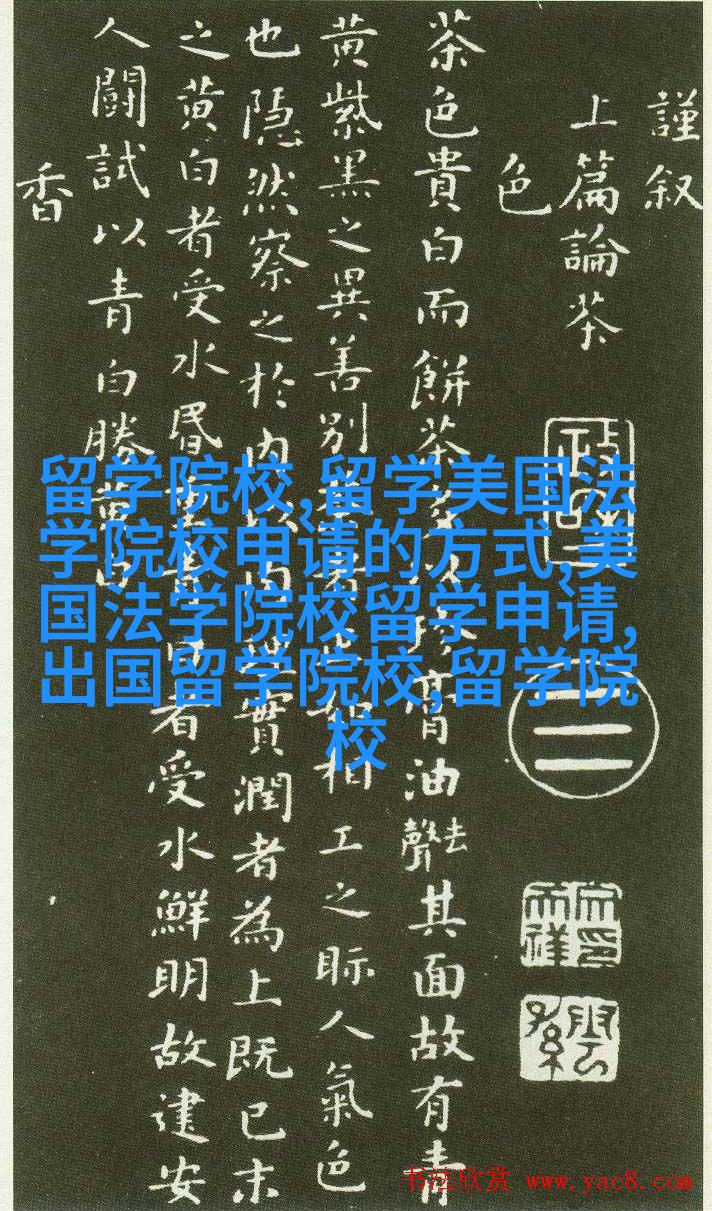 謹叙
上篇論茶
色
茶色貴白而餅茶多以珍膏油去聲其面故有青
黄紫黑之異善別茶者正如相工之眎人氣色
也隠然察之於内以肉理實潤者為上既已末
之黄白者受水昬重青白者受水鮮明故建安
人闘試以青白勝黄白
香
留学院校,留学美国法
学院校申请的方式,美
国法学院校留学申请,
出国留学院校,留学院
校
书法欣赏 www.yac8.com